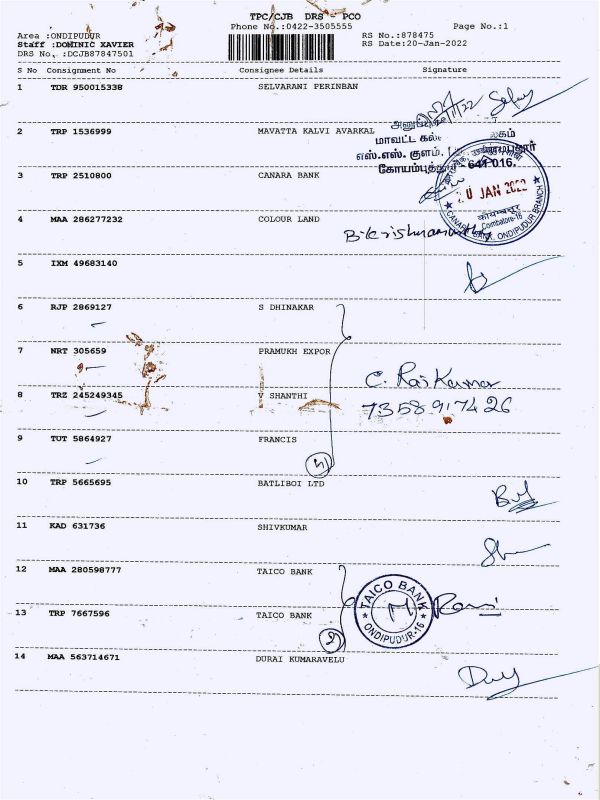 TPC/CJB DRS - PCO
Phone No.:0422-3505555 Page No.:1
Area :ONDIPUDUR RS No.:878475
Staff :DOMINIC XAVIER RS Date:20-Jan-2022
DRS No. :DCJB87847501
S No Consignment No Consignee Details Signature
1 TDR 950015338 SELVARANI PERINBAN
2 TRP 1536999 MAVATTA KALVI AVARKAL
மாவட்ட
எஸ்.எஸ். குளம்.
கோயம்புத்தூர் - 641 016.
3 TRP 2510800 CANARA BANK
20 JAN 2022
कोयम्बत्तूर
Coimbatore-16
CANARA BANK, ONDIPUDUR BRANCH
4 MAA 286277232 COLOUR LAND
B.Krishnamurthy
5 IXM 49683140
6 RJP 2869127 S DHINAKAR
7 NRT 305659 PRAMUKH EXPOR
C. Raj Kumar
8 TRZ 245249345 V SHANTHI
7358917426
9 TUT 5864927 FRANCIS
10 TRP 5665695 BATLIBOI LTD
11 KAD 631736 SHIVKUMAR
12 MAA 280598777 TAICO BANK
TAICO BANK
ONDIPUDUR-16
13 TRP 7667596 TAICO BANK
2
14 MAA 563714671 DURAI KUMARAVELU